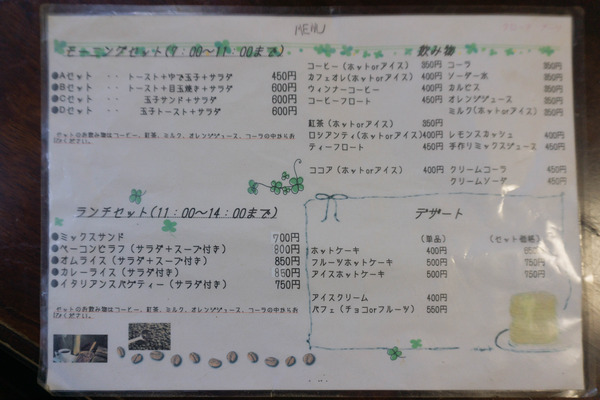 MENU
モーニングセット(9:00〜11:00まで)
●Aセット ・・ トースト+ゆで玉子+サラダ 450円
●Bセット ・・ トースト+目玉焼き+サラダ 600円
●Cセット ・・ 玉子サンド+サラダ 600円
●Dセット ・・ 玉子トースト+サラダ 600円
セットのお飲み物はコーヒー、紅茶、ミルク、オレンジジュース、コーラの中からお
ランチセット(11:00〜14:00まで)
●ミックスサンド 700円
●ベーコンピラフ(サラダ+スープ付き) 800円
●オムライス(サラダ+スープ付き) 850円
●カレーライス(サラダ付き)
●イタリアンスパゲティー(サラダ付き) 750円
セットのお飲み物はコーヒー、紅茶、ミルク、オレンジジュース、コーラの中からお
飲み物
コーヒー(ホットorアイス) 350円
カフェオレ(ホットorアイス) 400円
ウィンナーコーヒー 400円
コーヒーフロート 450円
紅茶(ホットorアイス) 350円
ロシアンティ(ホットorアイス) 400円
ティーフロート 450円
ココア(ホットorアイス) 400円
コーラ 350円
ソーダー水 350円
カルピス 350円
オレンジジュース 350円
ミルク(ホットorアイス) 350円
レモンスカッシュ 400円
手作りミックスジュース 450円
クリームコーラ 450円
クリームソーダ 450円
デザート
(単品) (セット価格)
ホットケーキ 400円
フルーツホットケーキ 500円 750円
アイスホットケーキ 500円 750円
アイスクリーム 400円
パフェ(チョコorフルーツ) 550円